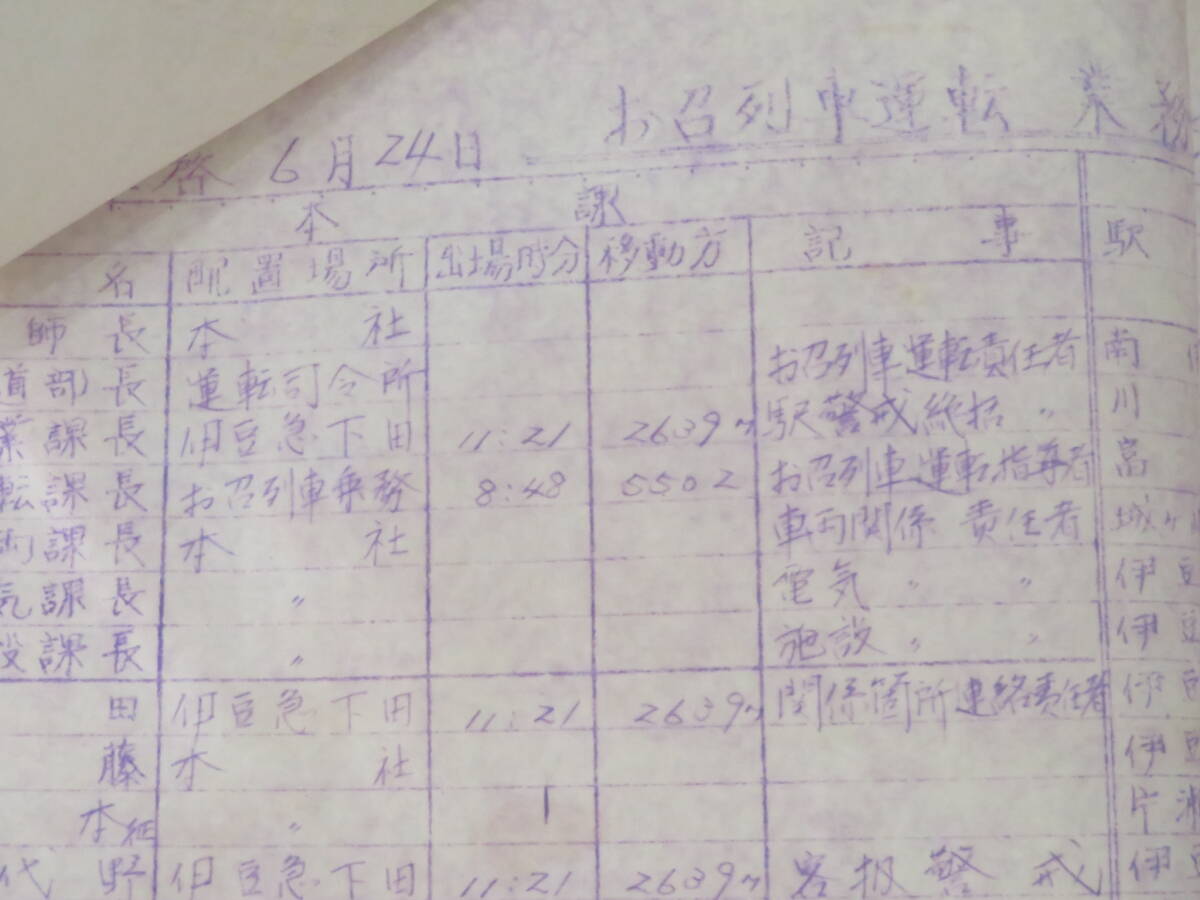 お召列車運転 業務
啓 6月24日
本 課
名 配置場所 出場時分 移動方 記 事 駅
師長 本 社
部)長 運転司令所 お召列車運転責任者 南
業課長 伊豆急下田 11:21 2639 駅警戒総括 〃 川
転課長 お召列車乗務 8:48 5502 お召列車運転指導者 富
課長 本 社 車両関係 責任者 城ヶ
気課長 〃 電気 〃 〃 伊豆
設課長 〃 施設 〃 〃 伊豆
田 伊豆急下田 11:21 2639 関係箇所連絡責任者 伊豆
藤 本 社 伊豆
本 〃 片瀬
代野 伊豆急下田 11:21 2639 客扱警戒 伊豆